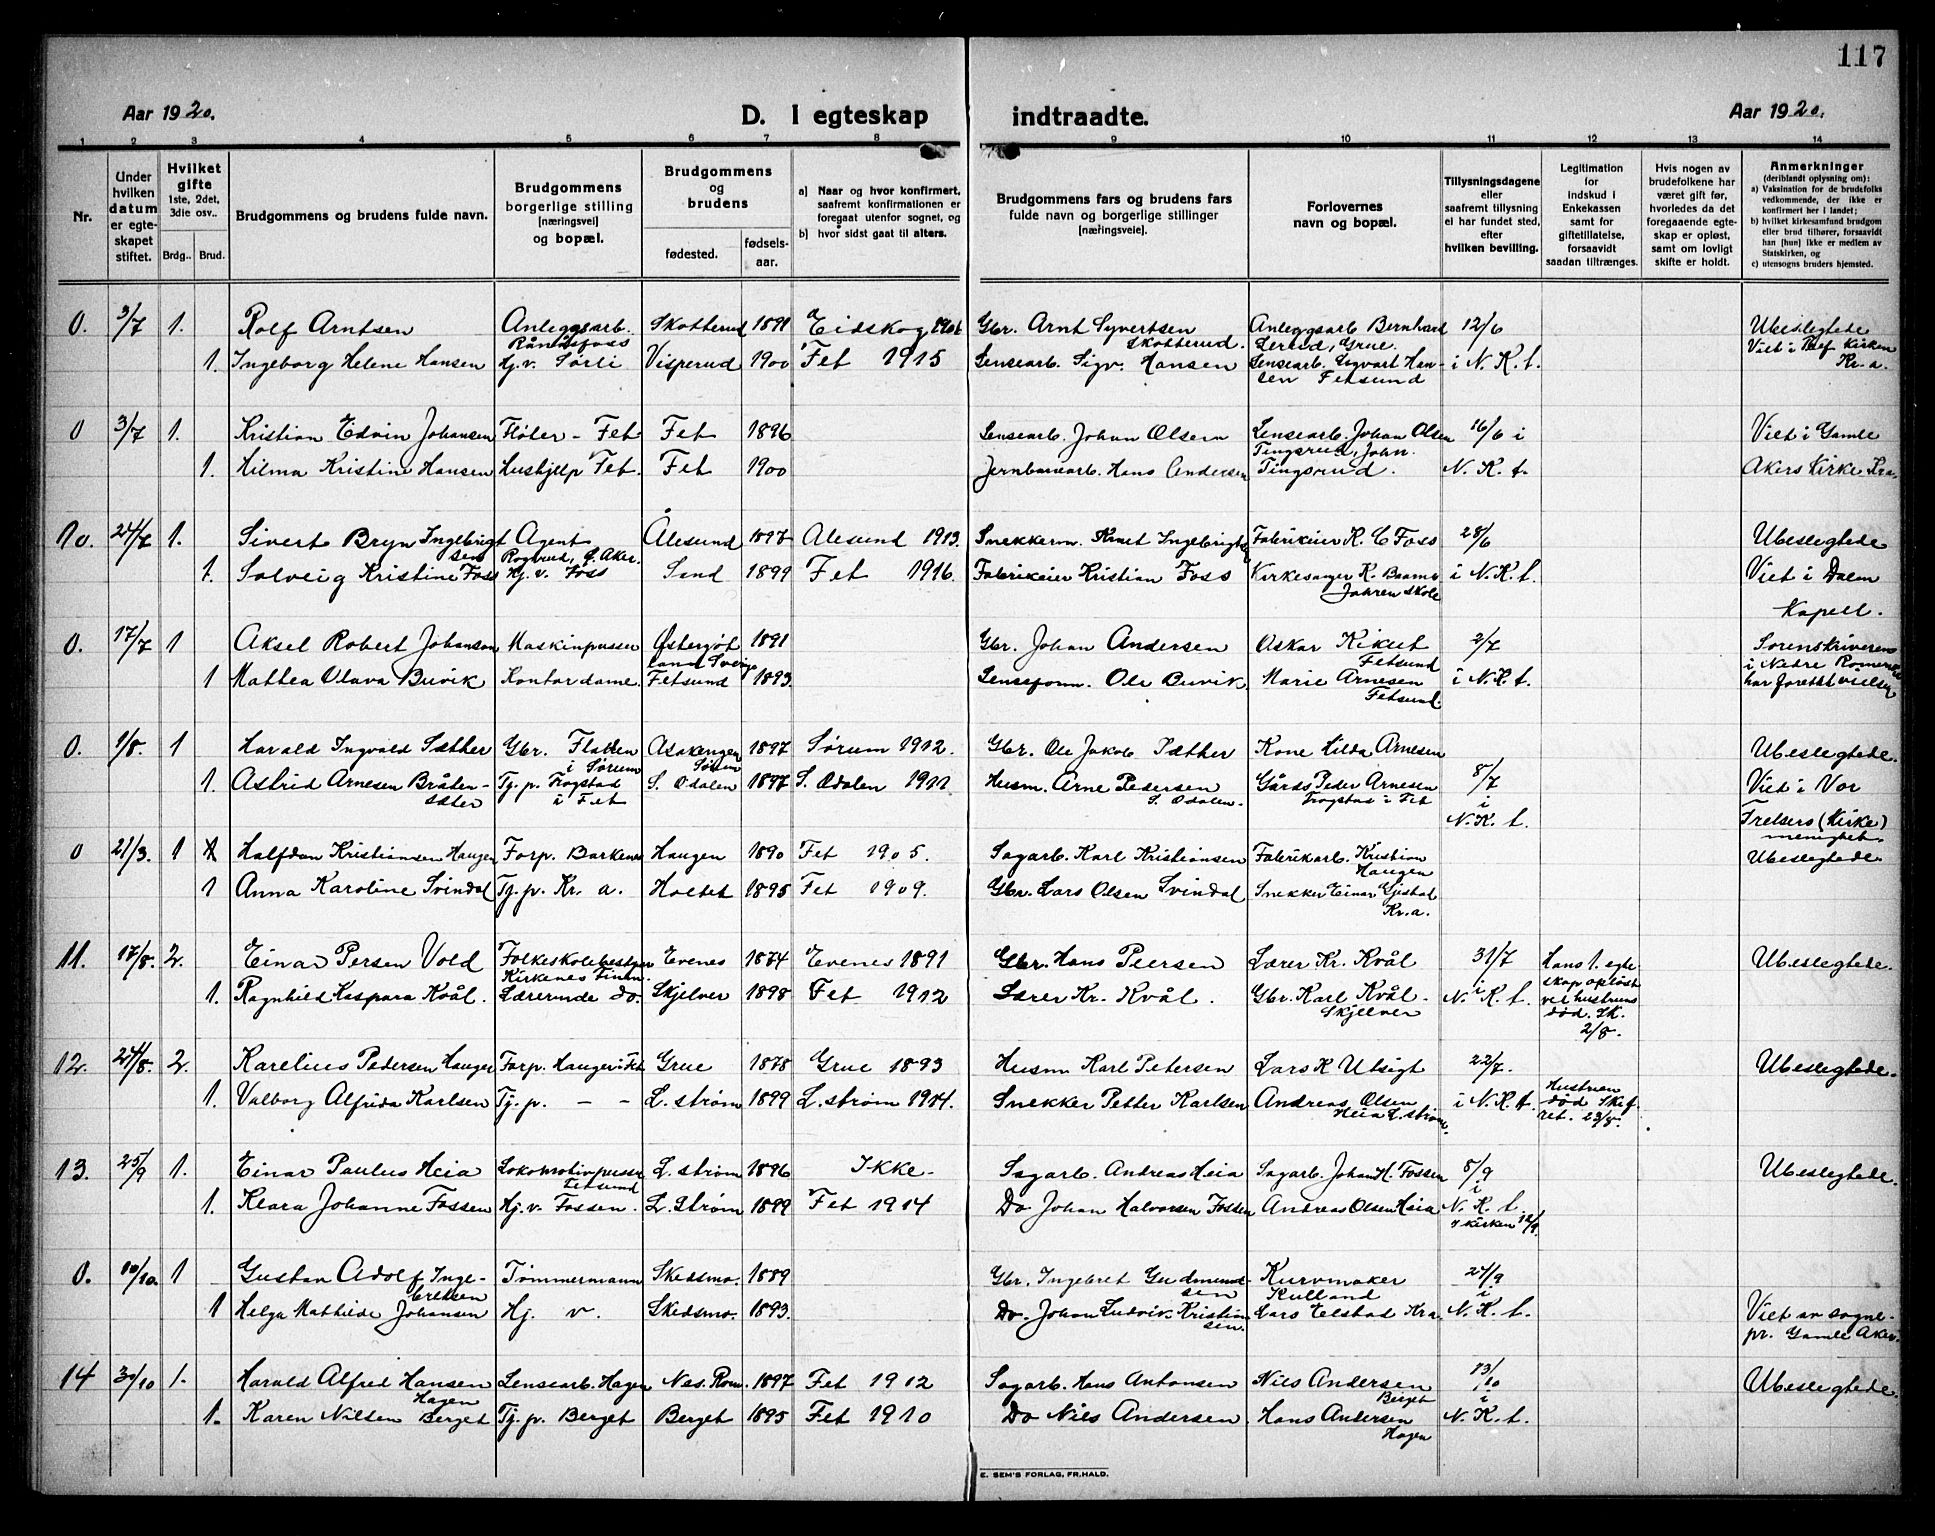 117
Aar 1920.
D. I egteskap indtraadte.
Aar 1920.
1 2 3 4 5 6 7 8 9 10 11 12 13 14
Nr.
Under hvilken datum er egteskapet stiftet.
Hvilket gifte 1ste, 2det, 3die osv..
Brdg.. Brud.
Brudgommens og brudens fulde navn.
Brudgommens borgerlige stilling [næringsvei] og bopæl.
Brudgommens og brudens
fødested. fødselsaar.
a) Naar og hvor konfirmert, saafremt konfirmationen er foregaat utenfor sognet, og
b) hvor sidst gaat til alters.
Brudgommens fars og brudens fars fulde navn og borgerlige stillinger [næringsveie].
Forlovernes navn og bopæl.
Tillysningsdagene eller saafremt tillysning ei har fundet sted, efter hvilken bevilling.
Legitimation for indskud i Enkekassen samt for giftetillatelse, forsaavidt saadan tiltrænges.
Hvis nogen av brudefolkene har været gift før, hvorledes da det foregaaende egteskap er opløst, samt om lovligt skifte er holdt.
Anmerkninger (deriblandt oplysning om):
a) Vaksination for de brudefolks vedkommende, der ikke er konfirmert her i landet;
b) hvilket kirkesamfund brudgom eller brud tilhører, forsaavidt han [hun] ikke er medlem av Statskirken, og
c) utensogns bruders hjemsted.
0. 3/7 1. Rolf Arntsen Anleggsarb. Rånåsfoss Skotterud 1891 Eidskog 1906 Gbr. Arnt Syvertsen Skotterud. Anleggsarb Bernhard Lerud, Grue. 12/6 Ubeslegtede
1. Ingeborg Helene Hansen Hj. v. Sørli Visperud 1900 Fet 1915 Lensearb. Sigv. Hansen Lensearb. Sigvart Hansen Fetsund i N. K. t. Viet i Kirken Kr.a.
0 3/7 1. Kristian Edvin Johansen Fløter - Fet Fet 1896 Lensearb. Johan Olsen Lensearb. Johan Olsen Tingsrud, John 16/6 i Viet i Gamle
1. Hilma Kristine Hansen Hushjelp Fet. Fet 1900 Jernbanearb. Hans Andersen Tingsrud. N. K. t. Akers Kirke Kra.
10. 24/7 1. Sivert Bryn Ingebrigtsen Agent Ø. Aker. Ålesund 1897 Alesund 1913. Snekkerm. Knut Ingebrigts Fabrikeier K. C Foss 28/6 Ubeslegtede
1. Solveig Kristine Foss Hj. v. Foss Sand 1899 Fet 1916. Fabrikeier Kristian Foss Kirkesanger K. Jahren skole i N. K. t. Viet i Kapell.
0. 17/7 1 Aksel Robert Johanson Maskinpusser Østergøtland Sverige 1891 Gbr. Johan Andersen Oskar Kikut Fetsund 2/7 Sorenskriveren
1 Mathea Olava Buvik Kontordame. Fetsund 1893. Lenseform. Ole Buvik Marie Arnesen Fetsund. i N. K. t. i Nedre Romerike har foretat vielsen
0. 1/8. 1 Harald Ingvald Sæther Gbr. Flatten i Sørum Asakengen Sørum 1897 Sørum 1912. Gbr. Ole Jakob Sæther Kone Hilda Arnesen 8/7 i Ubeslegtede
1. Astrid Arnesen Bråtensæter Tj. p. Frogstad i Fet S. Odalen 1897 S. Odalen 1911 Husm. Arne Pedersen S. Odalen. Gårds. Peder Arnesen Frogstad i Fet N. K. t. Viet i Vor Frelsers (Kirke) menighet.
0 21/3. 1 Halfdan Kristiansen Haugen Forp. Haugen 1890 Fet 1905. Sagarb. Karl Kristiansen Fabrikarb. Kristian Haugen Ubeslegtede
1 Anna Karoline Svindal Tj. p. Kr. a. Holtet 1895 Fet 1909. Gbr. Lars Olsen Svindal Snekker Einar Kr.a.
11. 17/8. 2. Einar Persen Vold Folkeskolebestyrer Kirkenes Finm. Evenes 1874 Evenes 1891 Gbr. Hans Peersen Lærer Kr. Kvål 31/7 Hans 1. egteskap opløst ved hustruens død. Sk. 2/8. Ubeslegtede.
1. Ragnhild Kaspara Kvål. Lærerinde do. Skjelver 1898 Fet 1912 Lærer Kr. Kvål. Gbr. Karl Kvål Skjelver i N. K. t.
12. 24/8. 2. Karelius Pedersen Hauger Forp. Hauger i Fet Grue 1878 Grue 1893 Husm Karl Petersen Lars K Utsigt 22/7. Ubeslegtede.
1. Valborg Alfrida Karlsen Tj. p. - - L. strøm 1899 L. strøm 1914. Snekker Petter Karlsen Andreas Olsen Heia L. strøm. i N. K. t. Hustruen død Skifret. 23/8.
13. 25/9 1. Einar Paulus Heia Lokomotivpusser Fetsund L. strøm 1896 Ikke - Sagarb. Andreas Heia Sagarb. Johan H. Fossen 5/9 i Ubeslegtede.
1. Klara Johanne Fossen Hj. v. Fossen. L. Strøm 1899 Fet 1914 Do Johan Halvorsen Fossen Andreas Olsen Heia N. K. t. i Kirken 12/9.
0. 10/10. 1 Gustav Adolf Ingebretsen Tømmermann Skedsmo. 1889 Gbr. Ingebret Gudmundsen Kurvmaker Kulland 24/9 i
1 Helga Mathilde Johansen Hj. v. Skedsmo. 1893. Do. Johan Ludvik Kristiansen. Lars Elstad Kra. N. K. t. Viet av sognepr. Gamle Aker.
14 30/10 1. Harald Alfred Hansen Hagen Lensearb. Hagen Nes. Rom. 1897 Fet 1912 Sagarb. Hans Antonsen Nils Andersen Berget 13/10 i Ubeslegtede.
1. Karen Nilsen Berget Tj. p. Berget Berget 1895 Fet 1910 Do Nils Andersen Hans Andersen Hagen N. K. t.
E. SEM'S FORLAG, FR.HALD.